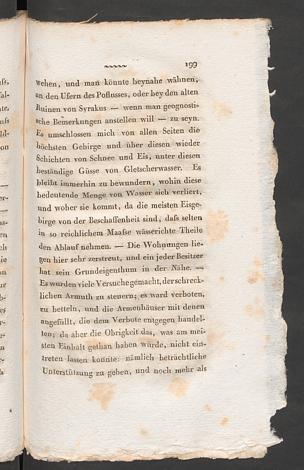 199
wehen, und man könnte beynahe wähnen,
an den Ufern des Posflusses, oder bey den alten
Ruinen von Syrakus — wenn man geognosti-
sche Bemerkungen anstellen will — zu seyn.
Es umschlossen mich von allen Seiten die
höchsten Gebirge und über diesen wieder
Schichten von Schnee und Eis, unter diesen
beständige Güsse von Gletscherwasser. Es
bleibt immerhin zu bewundern, wohin diese
bedeutende Menge von Wasser sich verliert,
und woher sie kommt, da die meisten Eisge-
birge von der Beschaffenheit sind, daſs selten
in so reichlichem Maaſse wässerichte Theile
den Ablauf nehmen. — Die Wohnungen lie-
gen hier sehr zerstreut, und ein jeder Besitzer
hat sein Grundeigenthum in der Nähe. —
Es wurden viele Versuche gemacht, der schreck-
lichen Armuth zu steuern; es ward verboten,
zu betteln, und die Armenhäuser mit denen
angefüllt, die dem Verbote entgegen handel-
ten; da aber die Obrigkeit das, was am mei-
sten Einhalt gethan haben würde, nicht ein-
treten lassen konnte: nämlich beträchtliche
Unterstützung zu geben, und noch mehr als